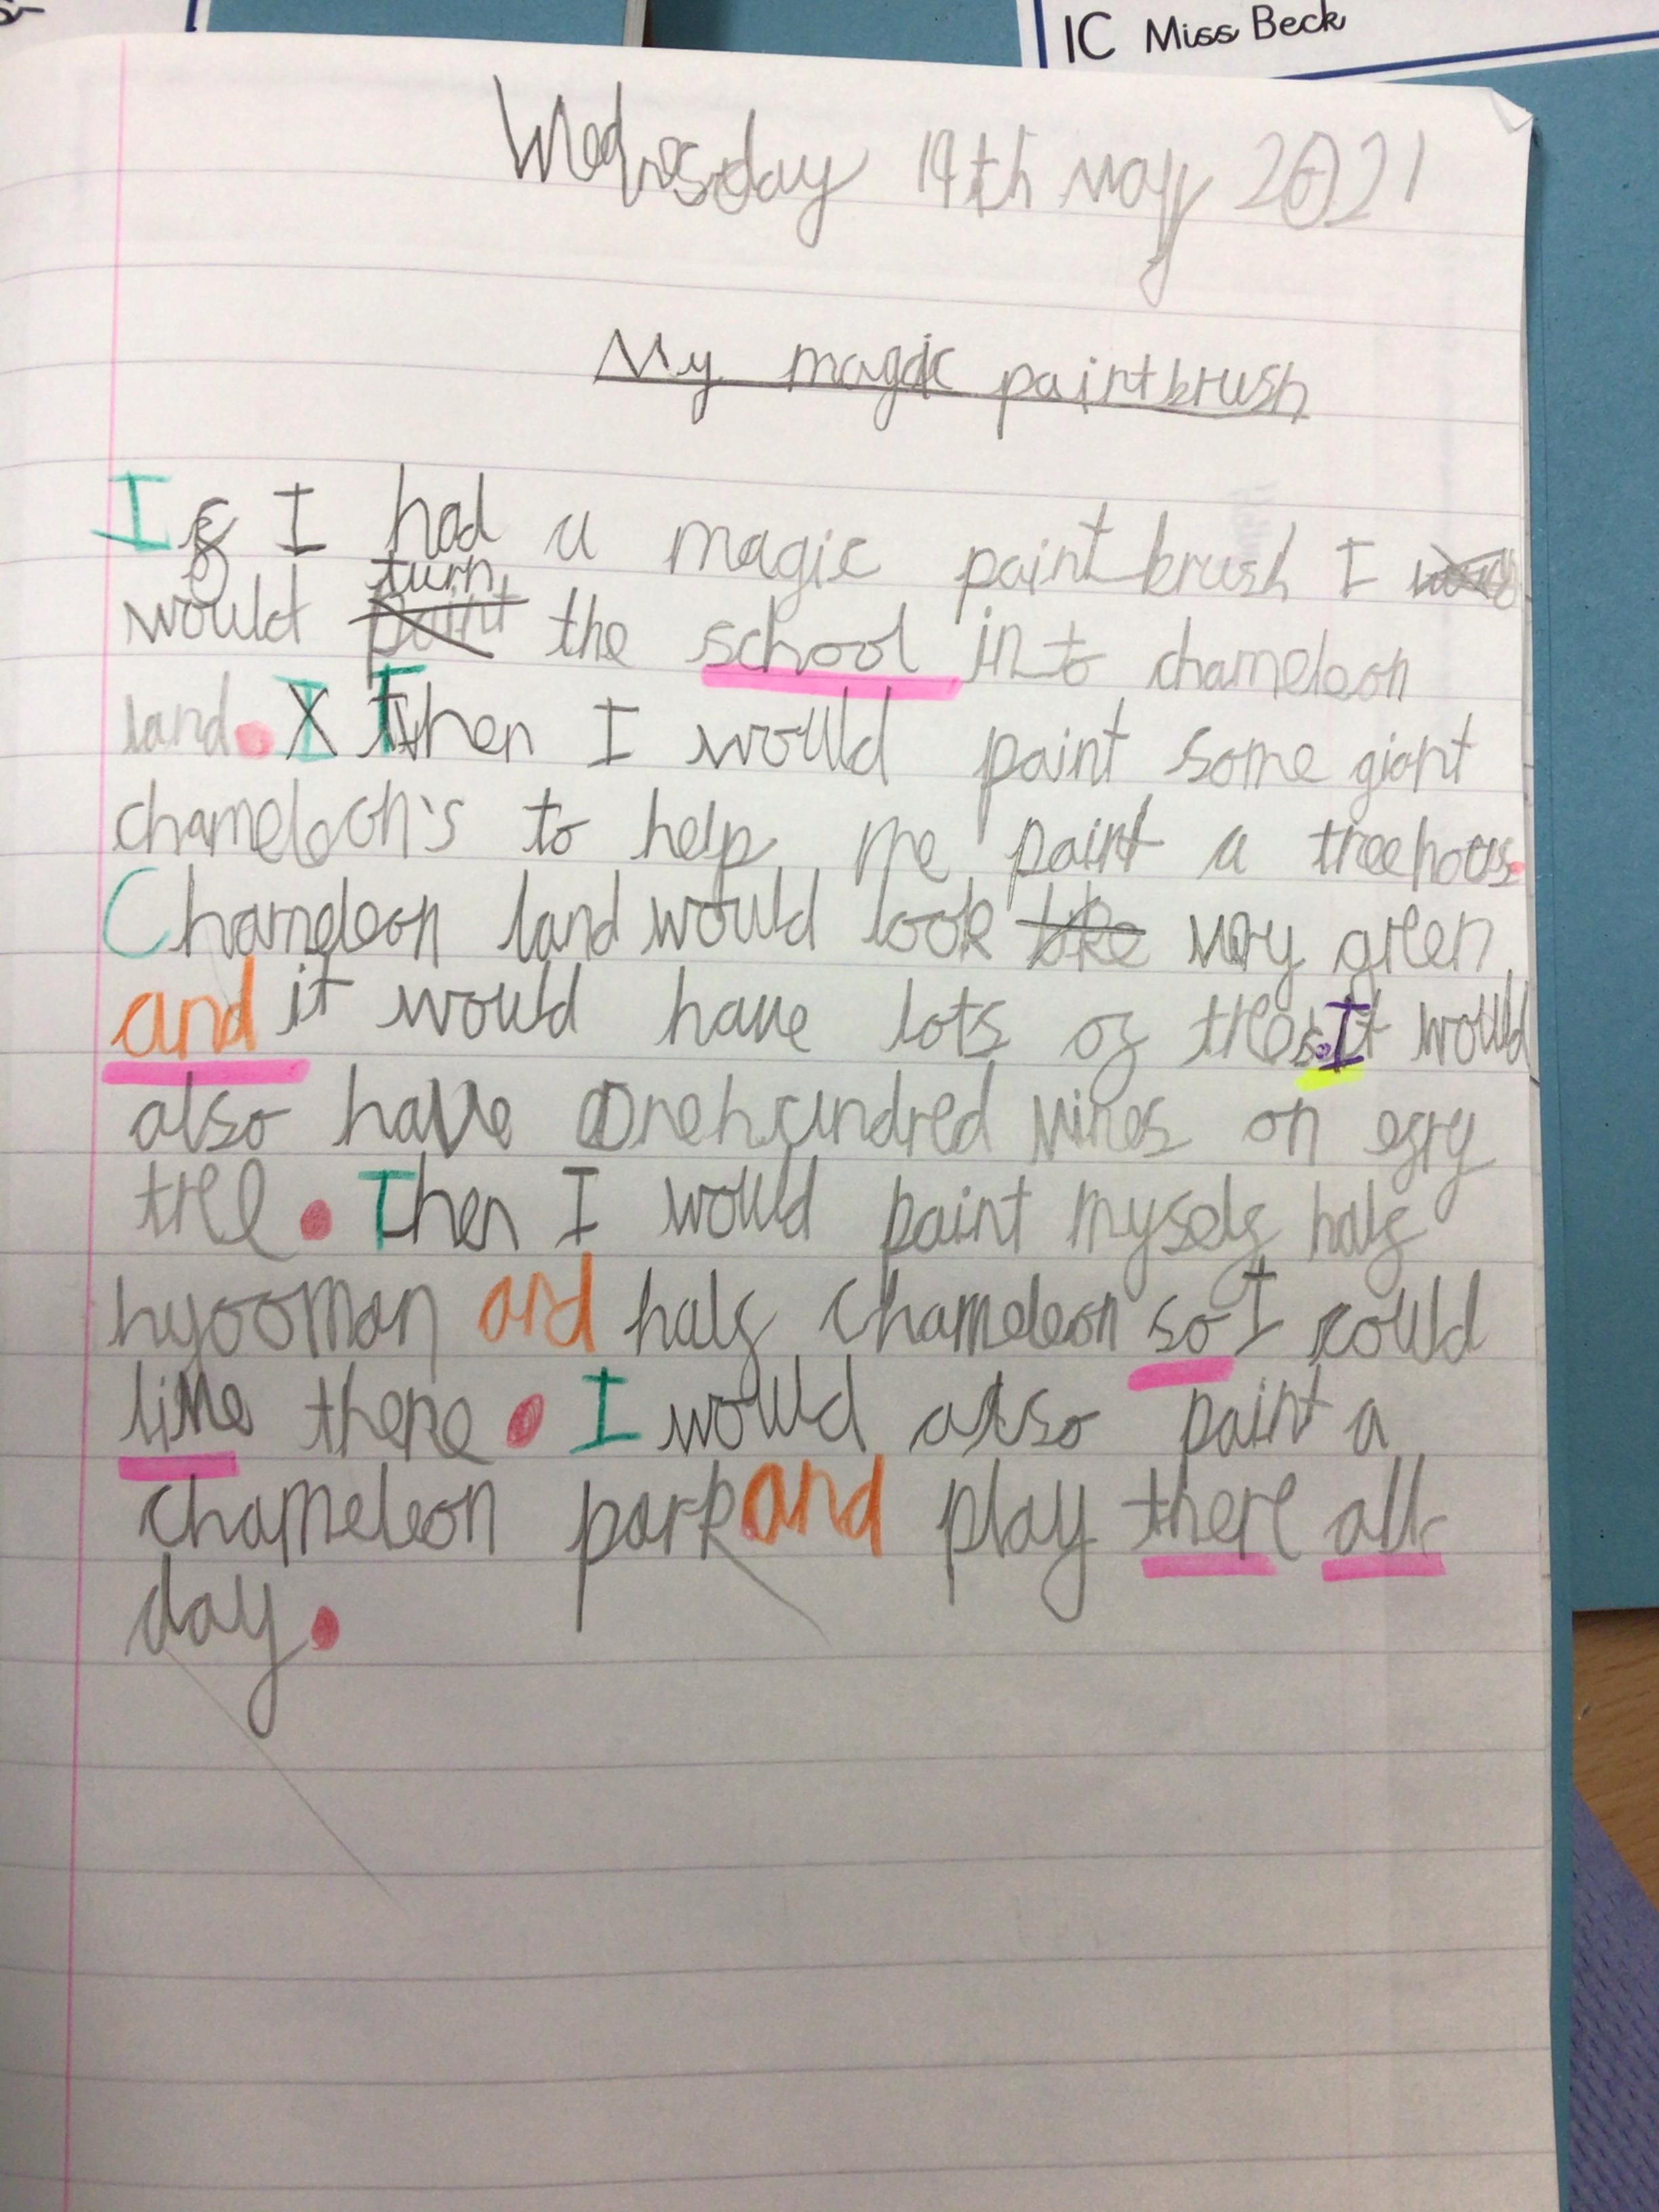 1C Miss Beck
Wednesday 19th May 2021
My magic paintbrush
If I had a magic paintbrush I
turn
would paint the school into chameleon
land. I Then I would paint some giant
chameleon's to help me paint a treehous.
Chameleon land would look like very green
and it would have lots of trees. It would
also have onehundred vines on evry
tree. Then I would paint myself half
hyooman and half chameleon so I could
live there. I would also paint a
chameleon park and play there all
day.